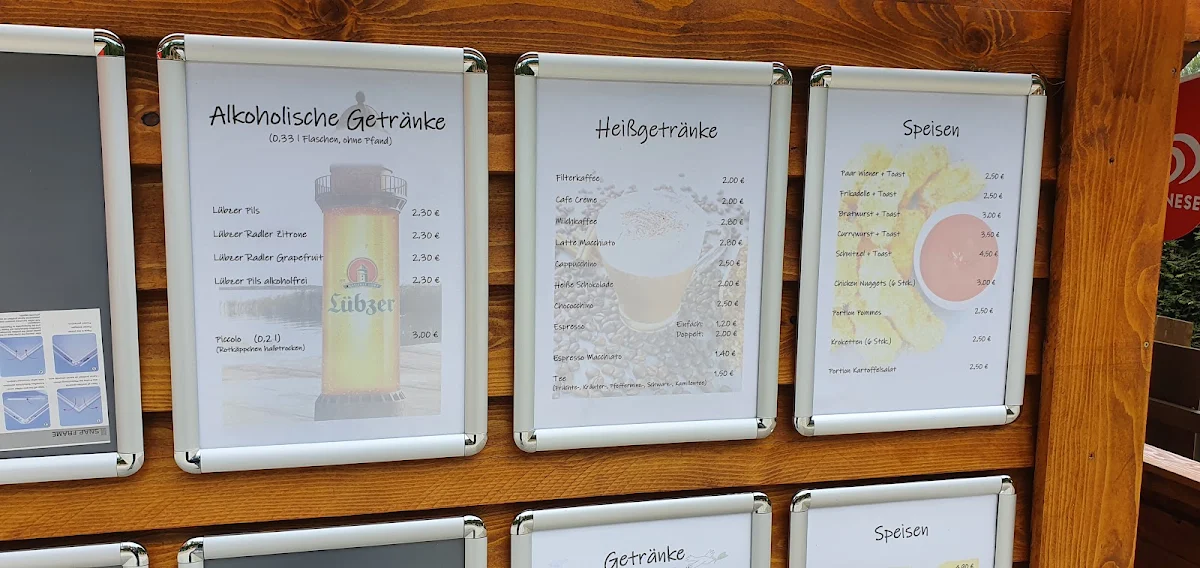 Alkoholische Getränke
(0,33 l Flaschen, ohne Pfand)
Lübzer Pils 2,30 €
Lübzer Radler Zitrone 2,30 €
Lübzer Radler Grapefruit 2,30 €
Lübzer Pils alkoholfrei 2,30 €
Lübzer
Piccolo (0,2 l) 3,00 €
(Rotkäppchen halbtrocken)
Heißgetränke
Filterkaffee 2,00 €
Cafe Creme 2,00 €
Milchkaffee 2,80 €
Latte Macchiato 2,80 €
Cappuccino 2,50 €
Heiße Schokolade 2,00 €
Chococchino 2,50 €
Espresso Einfach: 1,20 €
Doppelt: 2,00 €
Espresso Macchiato 1,40 €
Tee 1,50 €
(Früchte-, Kräuter-, Pfefferminz-, Schwarz-, Kamillentee)
Speisen
Paar Wiener + Toast 2,50 €
Frikadelle + Toast 2,50 €
Bratwurst + Toast 3,00 €
Currywurst + Toast 3,50 €
Schnitzel + Toast 4,50 €
Chicken Nuggets (6 Stck.) 3,00 €
Portion Pommes 2,50 €
Kroketten (6 Stck.) 2,50 €
Portion Kartoffelsalat 2,50 €
SNAP FRAME
Getränke
Speisen